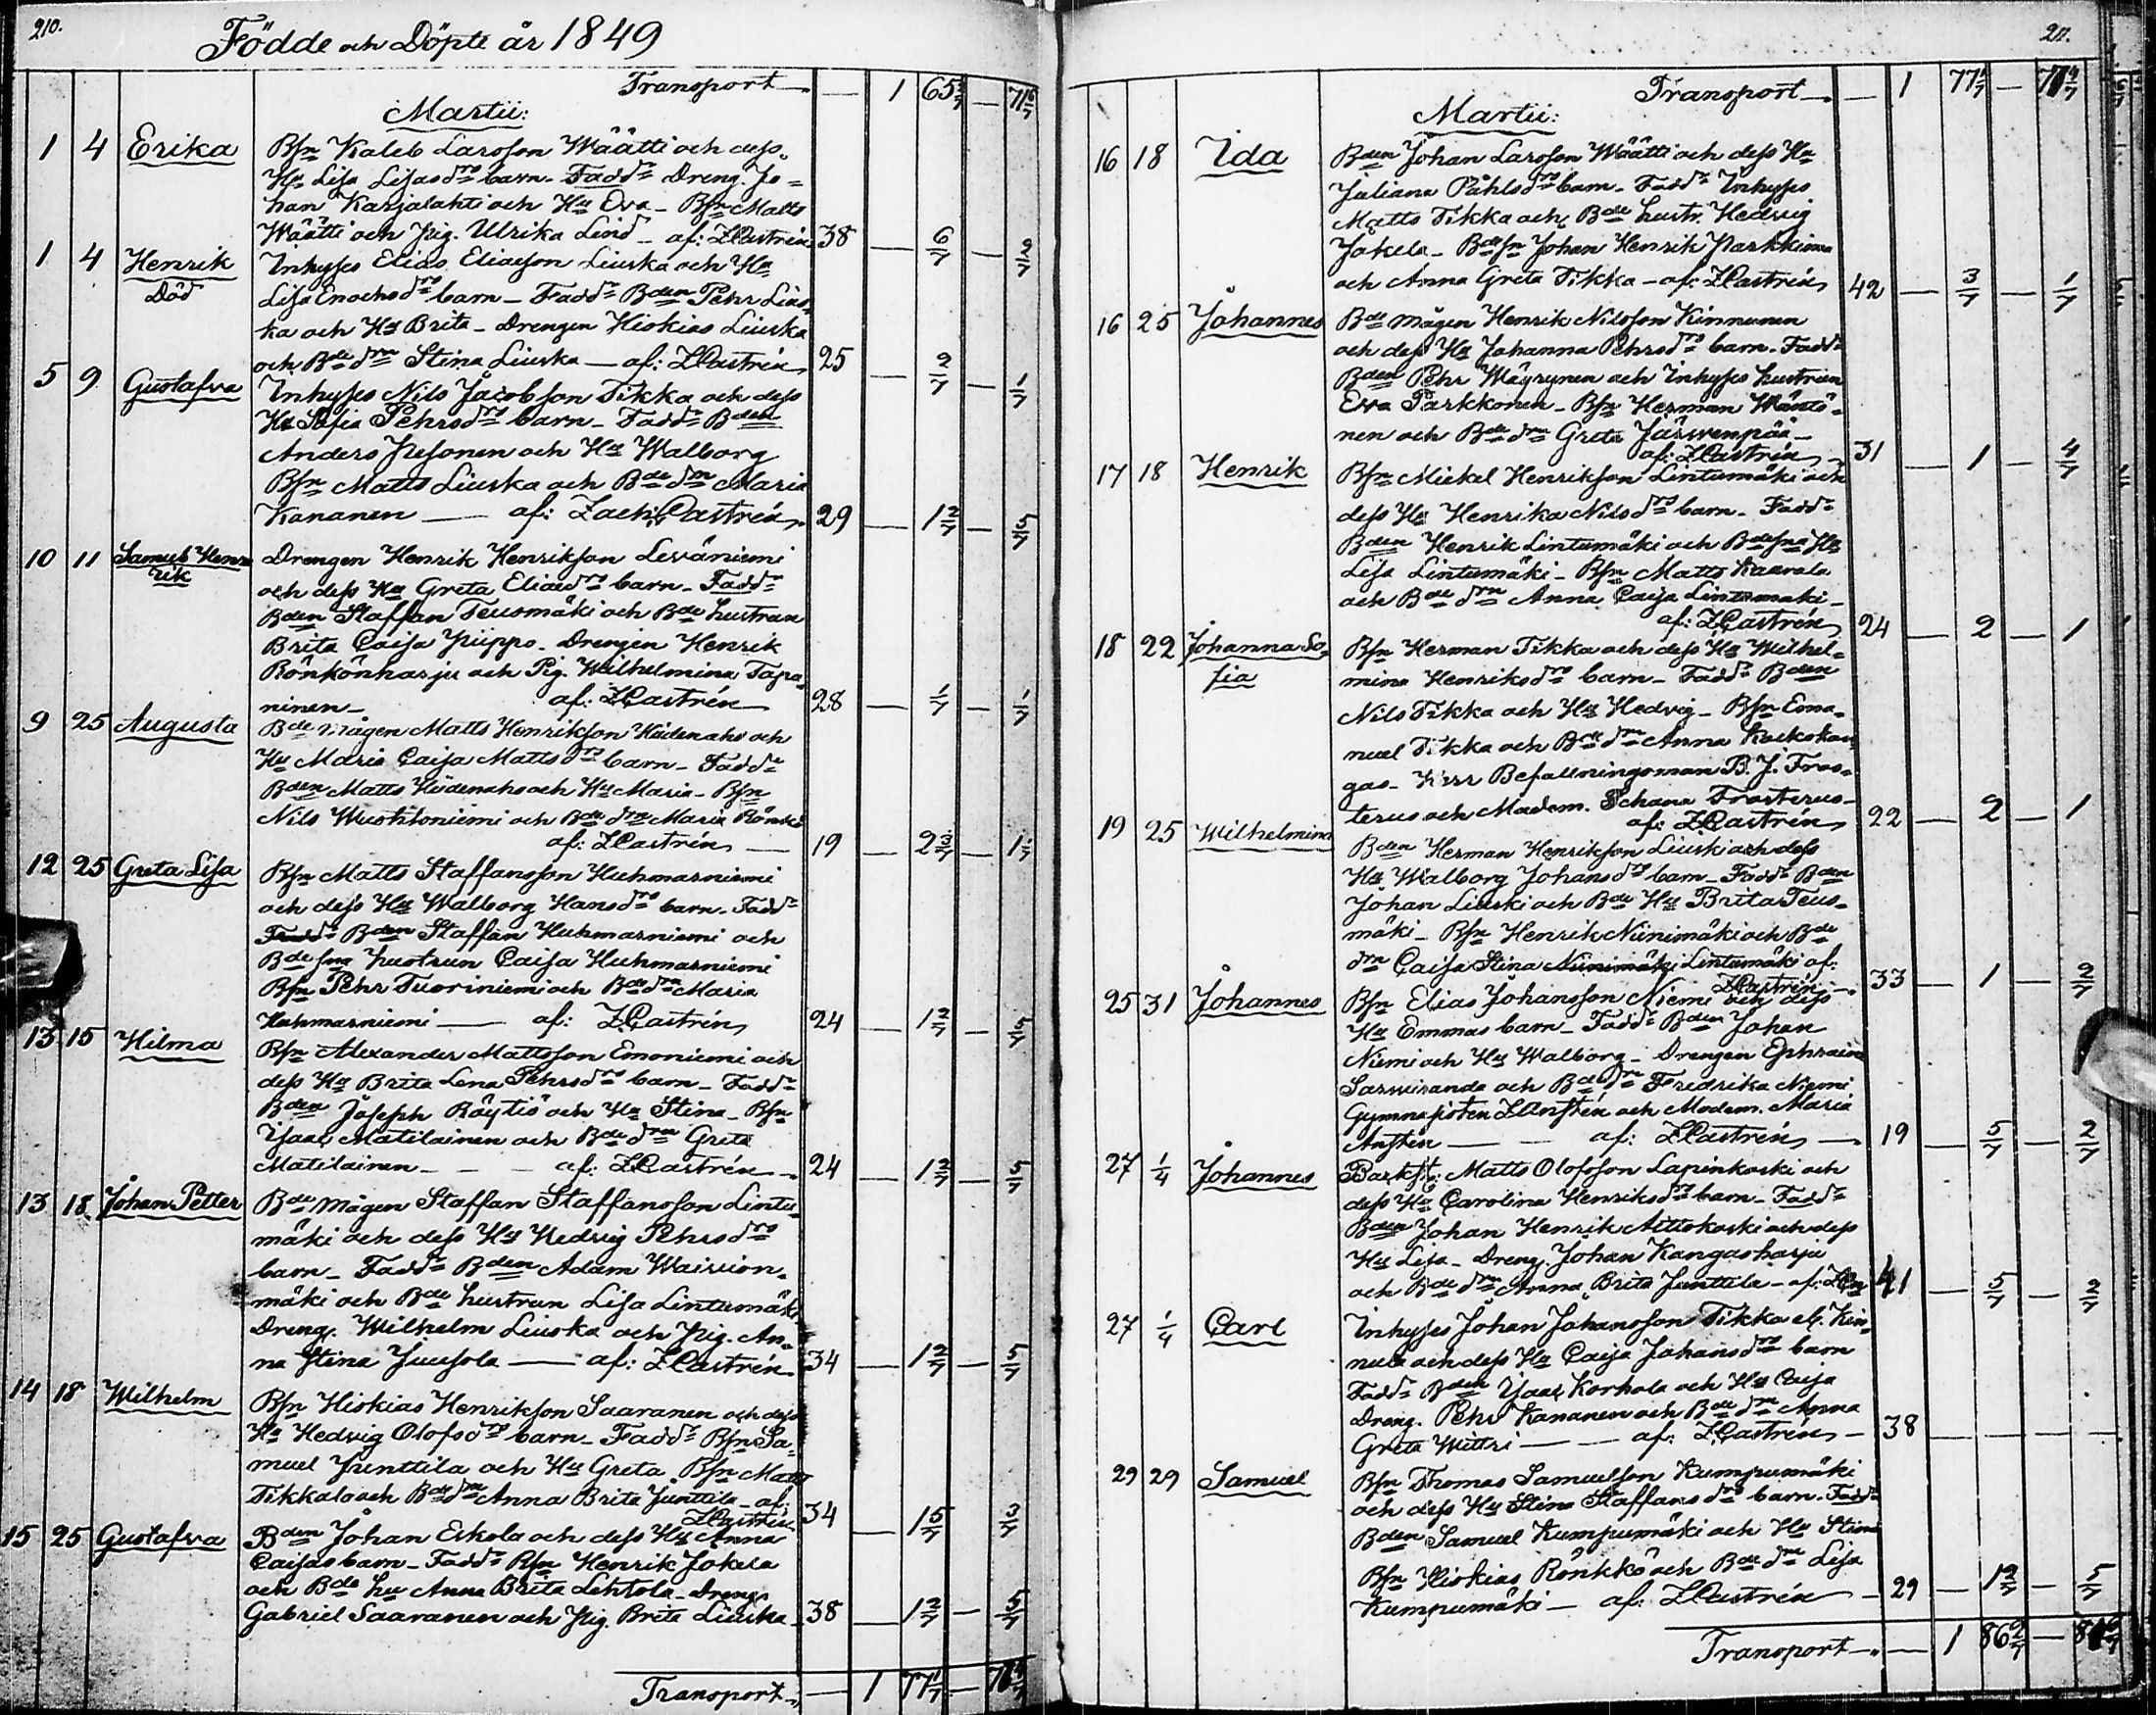 210.
Födde och Döpte år 1849
Transport — 1 65 — 71
Martii:
1 4 Erika Bsn Kaleb Larsson Wäätti och dess
Hu Lisa Lisasdrs barn. Faddr Dreng. Jo=
han Karjalahti och Hu Eva — Bsn Matts
Wäätti och Pig. Ulrika Lind — af: ZCastrén 38 — 6/7 — 2/7
1 4 Henrik Inhyses Elias Eliasson Liuska och Hu
Död Lisa Enochsdrs barn — Faddr Bden Pehr Lius=
ka och Hu Brita — Drengen Hiskias Liuska
och Bde dm Stina Liuska — af: ZCastrén 25 — 2/7 — 1/7
5 9 Gustafva Inhyses Nils Jacobsson Tikka och dess
Hu Sofia Pehrsdrs barn — Faddr Bden
Anders Pesonen och Hu Walborg
Bsn Matts Liuska och Bde dm Maria
Kananen — af: Zach: Castrén 29 — 1 2/7 — 5/7
10 11 Samuel Hen= Drengen Henrik Henriksson Leväniemi
rik och dess Hu Greta Eliaedrs barn — Faddr
Bden Staffan Teusmäki och Bde hustrun
Brita Caisa Piippo. Drengen Henrik
Rönkönharju och Pig. Wilhelmina Tapa=
ninen — af: ZCastrén 28 — 1/7 — 1/7
9 25 Augusta Bde mågen Matts Henriksson Hiidenaho och
Hu Maria Caisa Mattsdrs barn — Faddr
Bden Matts Hiidenaho och Hu Maria — Bsn
Nils Wuohtoniemi och Bde dm Maria Rönkö
af: ZCastrén — 19 — 2 — 1
12 25 Greta Lisa Bsn Matts Staffansson Huhmarniemi
och dess Hu Walborg Hansdrs barn. Faddr
Faddr Bden Staffan Huhmarniemi och
Bde sna hustrun Caisa Huhmarniemi
Bsn Pehr Tuoriniemi och Bde dm Maria
Huhmarniemi — af: ZCastrén 24 — 1 2/7 — 5/7
13 15 Hilma Bsn Alexander Mattsson Emoniemi och
dess Hu Brita Lena Pehrsdrs barn — Faddr
Bden Joseph Röytiö och Hu Stina — Bsn
Isaac Matilainen och Bde dm Greta
Matilainen — af: ZCastrén 24 — 1 2/7 — 5/7
13 18 Johan Petter Bde mågen Staffan Staffansson Lintu=
mäki och dess Hu Hedvig Pehrsdrs
barn — Faddr Bden Adam Wairion=
mäki och Bde hustrun Lisa Lintumäki
Dreng. Wilhelm Liuska och Pig. An=
na Stina Juusola — af: ZCastrén 34 — 1 2/7 — 5/7
14 18 Wilhelm Bsn Hiskias Henriksson Saaranen och dess
Hu Hedvig Olofsdrs barn — Faddr Bsn Sa=
muel Junttila och Hu Greta Bsn Matts
Tikkala och Bde dm Anna Brita Junttila — af:
ZCastrén 34 — 1 5/7 — 3/7
15 25 Gustafva Bden Johan Eskola och dess Hu Anna
Caisas barn — Faddr Bsn Henrik Jokela
och Bde hu Anna Brita Lehtola — Dreng.
Gabriel Saaranen och Pig. Brita Liuska — 38 — 1 2/7 — 5/7
Transport — 1 77 1/7 — 7 4/7
211.
Transport — 1 77 1/7 — 77 4/7
Martii:
16 18 Ida Bden Johan Larsson Wäätti och dess Hu
Juliana Påhlsdrs barn — Faddr Inhyses
Matts Tikka och Bde hustr. Hedvig
Jokela — Bdesn Johan Henrik Parkkima
och Anna Greta Tikka — af: ZCastrén 42 — 3/7 — 1/7
16 25 Johannes Bde mågen Henrik Nilsson Kinnunen
och dess Hu Johanna Pehrsdrs barn. Faddr
Bden Pehr Wäyrynen och Inhyses hustrun
Eva Parkkonen — Bsn Herman Wäntö=
nen och Bde dm Greta Järvenpää —
af: ZCastrén 31 — 1 — 4/7
17 18 Henrik Bsn Mickel Henriksson Lintumäki och
dess Hu Henrika Nilsdrs barn — Faddr
Bden Henrik Lintumäki och Bdesna Hu
Lisa Lintumäki — Bsn Matts Kaarala
och Bde dm Anna Caisa Lintumäki —
af: ZCastrén 24 — 2 — 1
18 22 Johanna So= Bsn Herman Tikka och dess Hu Wilhel=
fia mina Henriksdrs barn — Faddr Bden
Nils Tikka och Hu Hedvig — Bsn Ema=
nuel Tikka och Bde dm Anna Koikokan
gas — Herr Befallningsman B. J. Fros=
terus och Madem. Johana Frosterus —
af: ZCastrén 22 — 2 — 1
19 25 Wilhelmina Bden Herman Henriksson Liuski och dess
Hu Walborg Johansdrs barn — Faddr Bden
Johan Liuski och Bde Hu Brita Teus=
mäki — Bsn Henrik Niinimäki och Bde
dm Caisa Stina Niinimäki Lintumäki af:
ZCastrén — 33 — 1 — 2/7
25 31 Johannes Bsn Elias Johansson Niemi och dess
Hu Emmas barn — Faddr Bden Johan
Niemi och Hu Walborg — Drengen Ephraim
Sarwiranda och Bde dm Fredrika Niemi
Gymnasisten ZAnstén och Madem. Maria
Anstén — af: ZCastrén — 19 — 5/7 — 2/7
27 1/4 Johannes Backst: Matts Olofsson Lapinkoski och
dess Hu Carolina Henriksdrs barn — Faddr
Bden Johan Henrik Aittokoski och dess
Hu Lisa — Dreng. Johan Kangasharju
och Bde dm Anna Brita Junttila — af: ZCn 41 — 5/7 — 2/7
27 1/4 Carl Inhyses Johan Johansson Tikka el. Kin=
nula och dess Hu Caisa Johansdrs barn
Faddr Bden Isaac Korhola och Hu Caisa
Dreng. Pehr Kananen och Bde dm Anna
Greta Wittri — af: ZCastrén — 38 — — —
29 29 Samuel Bsn Thomas Samuelsson Kumpumäki
och dess Hu Stina Staffansdrs barn. Faddr
Bden Samuel Kumpumäki och Hu Stina
Bsn Hiskias Rönkkö och Bde dm Lisa
Kumpumäki — af: ZCastrén — 29 — 1 2/7 — 5/7
Transport — 1 86 2/7 — 8 6/7